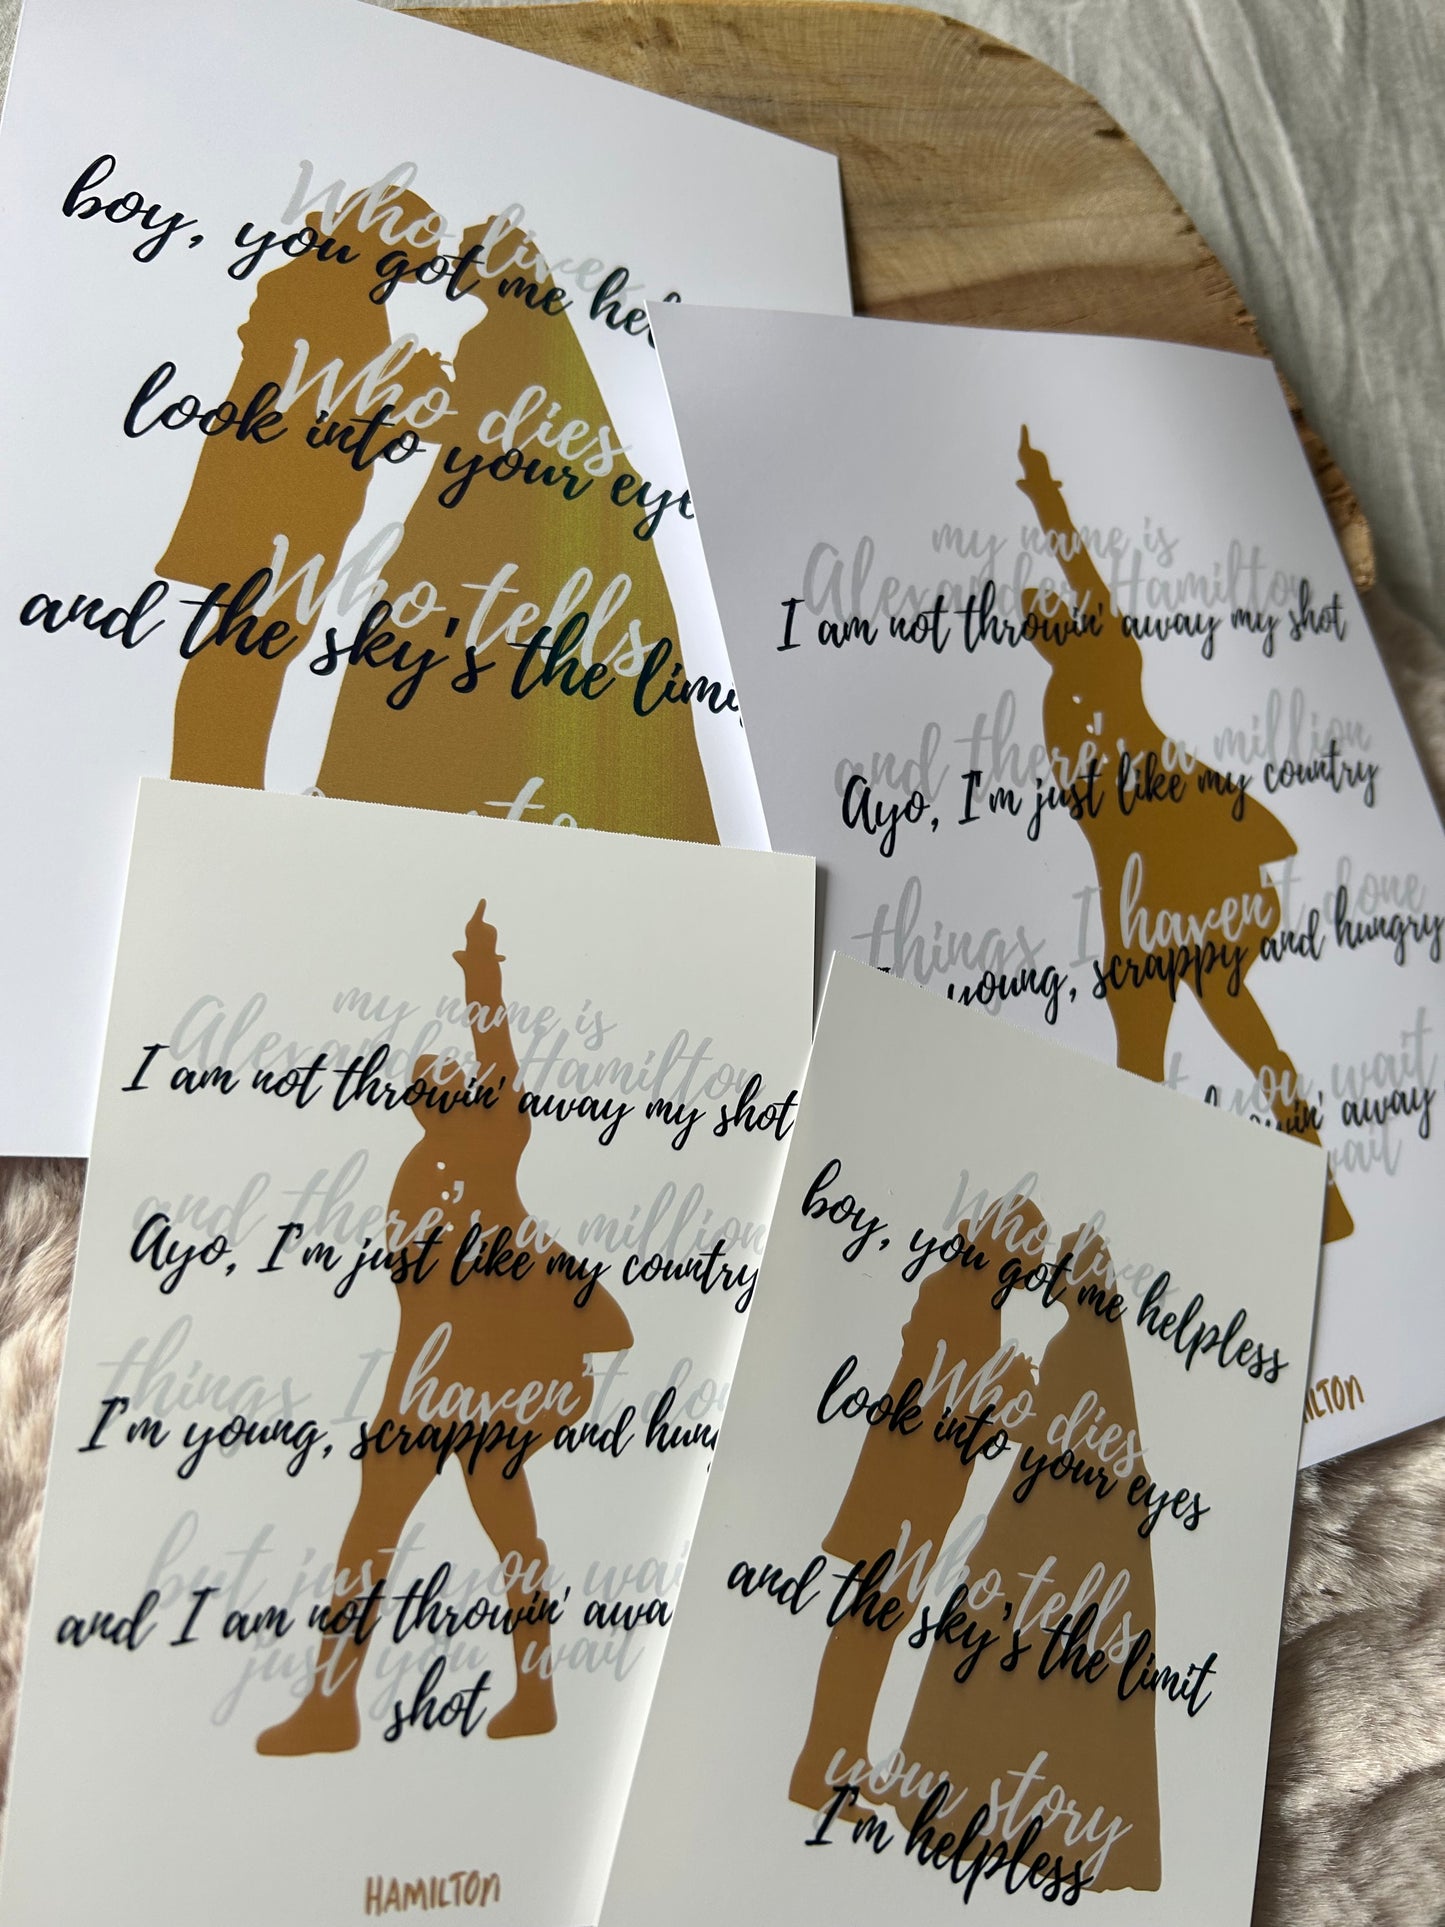 Who lives
boy, you got me
Who dies
look into your
Who tells
and the sky's the
my name is
Alexander Hamilton
I am not throwin' away my shot
and there's a million
Ayo, I'm just like my country
things I haven't done
young, scrappy and hungry
you wait
away
my name is
Alexander Hamilton
I am not throwin' away my shot
and there's a million
Ayo, I'm just like my country
things I haven't
I'm young, scrappy and
but just you
and I am not throwin'
just you wait
shot
HAMILTON
Who lives
boy, you got me helpless
Who dies
look into your eyes
Who tells
and the sky's the limit
your story
I'm helpless